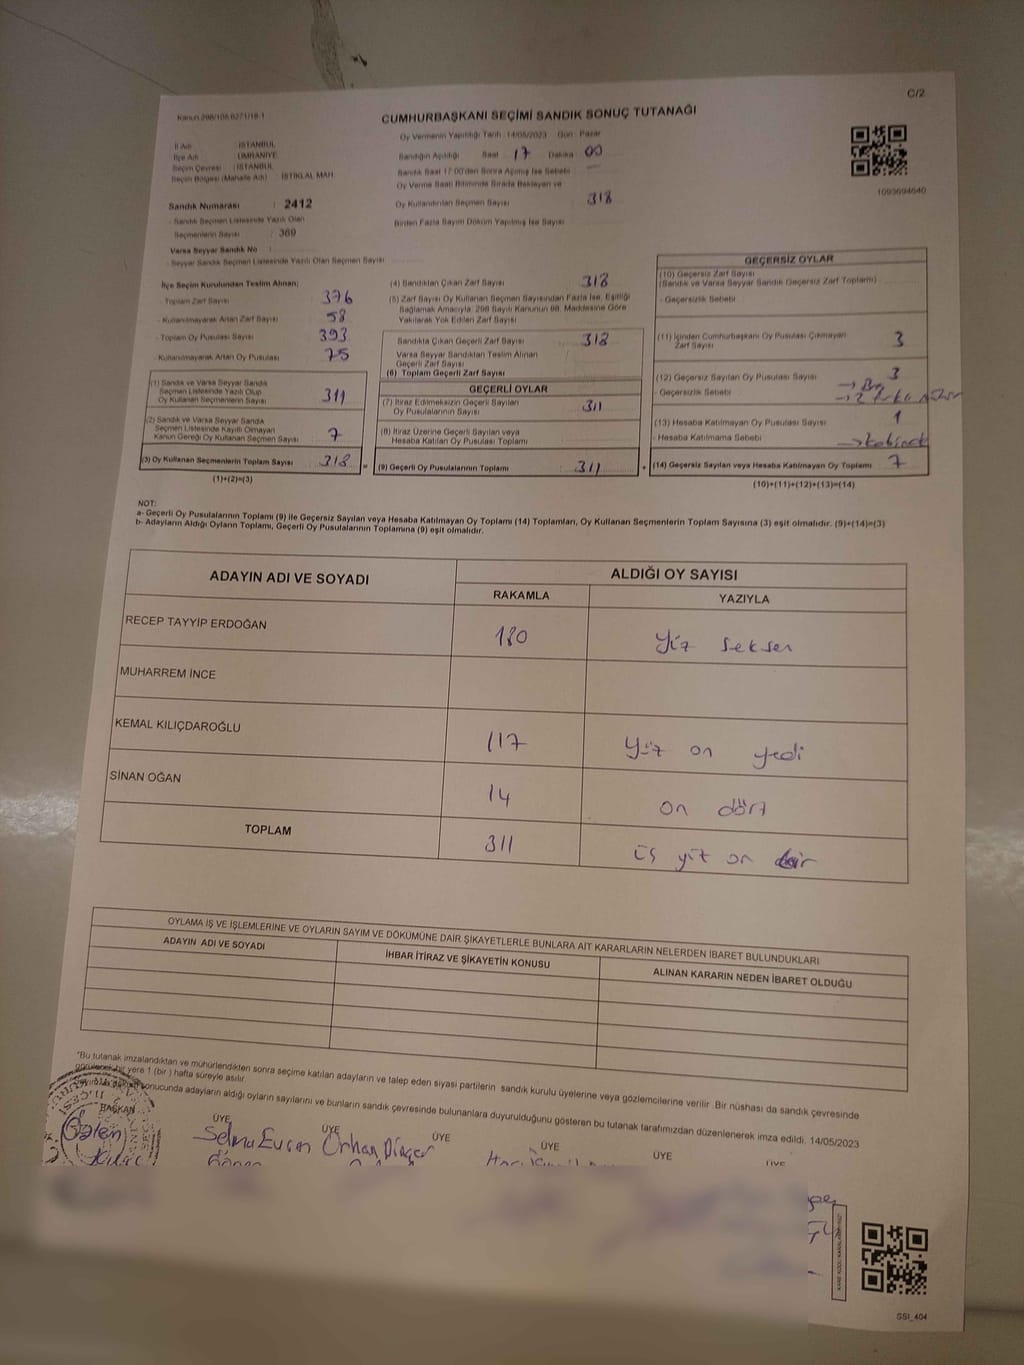 C/2
Kanun 298/105.6271/18-1
CUMHURBAŞKANI SEÇİMİ SANDIK SONUÇ TUTANAĞI
Oy Vermenin Yapıldığı Tarih : 14/05/2023 Gün : Pazar
İl Adı : İSTANBUL
İlçe Adı : ÜMRANİYE
Seçim Çevresi : İSTANBUL
Seçim Bölgesi (Mahalle Adı) İSTİKLAL MAH.
Sandığın Açıldığı Saat : 17 Dakika 00
Sandık Saat 17:00'den Sonra Açılmış İse Sebebi
Oy Verme Saati Bitiminde Sırada Bekleyen ve
Oy Kullandırılan Seçmen Sayısı : 318
Birden Fazla Sayım Döküm Yapılmış İse Sayısı
1093694640
Sandık Numarası : 2412
- Sandık Seçmen Listesinde Yazılı Olan
Seçmenlerin Sayısı : 369
Varsa Seyyar Sandık No :
- Seyyar Sandık Seçmen Listesinde Yazılı Olan Seçmen Sayısı
İlçe Seçim Kurulundan Teslim Alınan;
- Toplam Zarf Sayısı 376
- Kullanılmayarak Artan Zarf Sayısı 58
- Toplam Oy Pusulası Sayısı 393
- Kullanılmayarak Artan Oy Pusulası 75
(1) Sandık ve Varsa Seyyar Sandık
Seçmen Listesinde Yazılı Olup
Oy Kullanan Seçmenlerin Sayısı 311
(2) Sandık ve Varsa Seyyar Sandık
Seçmen Listesinde Kayıtlı Olmayan
Kanun Gereği Oy Kullanan Seçmen Sayısı 7
(3) Oy Kullanan Seçmenlerin Toplam Sayısı 318
(1)+(2)=(3)
(4) Sandıktan Çıkan Zarf Sayısı 318
(5) Zarf Sayısı Oy Kullanan Seçmen Sayısından Fazla İse, Eşitliği
Sağlamak Amacıyla; 298 Sayılı Kanunun 98. Maddesine Göre
Yakılarak Yok Edilen Zarf Sayısı
Sandıkta Çıkan Geçerli Zarf Sayısı 318
Varsa Seyyar Sandıktan Teslim Alınan
Geçerli Zarf Sayısı
(6) Toplam Geçerli Zarf Sayısı
GEÇERLİ OYLAR
(7) İtiraz Edilmeksizin Geçerli Sayılan
Oy Pusulalarının Sayısı 311
(8) İtiraz Üzerine Geçerli Sayılan veya
Hesaba Katılan Oy Pusulası Toplamı
(9) Geçerli Oy Pusulalarının Toplamı : 311
GEÇERSİZ OYLAR
(10) Geçersiz Zarf Sayısı
(Sandık ve Varsa Seyyar Sandık Geçersiz Zarf Toplamı)
- Geçersizlik Sebebi
(11) İçinden Cumhurbaşkanı Oy Pusulası Çıkmayan
Zarf Sayısı 3
(12) Geçersiz Sayılan Oy Pusulası Sayısı 3
- Geçersizlik Sebebi
(13) Hesaba Katılmayan Oy Pusulası Sayısı 1
- Hesaba Katılmama Sebebi
(14) Geçersiz Sayılan veya Hesaba Katılmayan Oy Toplamı 7
(10)+(11)+(12)+(13)=(14)
NOT:
a- Geçerli Oy Pusulalarının Toplamı (9) ile Geçersiz Sayılan veya Hesaba Katılmayan Oy Toplamı (14) Toplamları, Oy Kullanan Seçmenlerin Toplam Sayısına (3) eşit olmalıdır. (9)+(14)=(3)
b- Adayların Aldığı Oyların Toplamı, Geçerli Oy Pusulalarının Toplamına (9) eşit olmalıdır.
ADAYIN ADI VE SOYADI
ALDIĞI OY SAYISI
RAKAMLA YAZIYLA
RECEP TAYYİP ERDOĞAN 180 yüz seksen
MUHARREM İNCE
KEMAL KILIÇDAROĞLU 117 yüz on yedi
SİNAN OĞAN 14 on dört
TOPLAM 311 üç yüz on bir
OYLAMA İŞ VE İŞLEMLERİNE VE OYLARIN SAYIM VE DÖKÜMÜNE DAİR ŞİKAYETLERLE BUNLARA AİT KARARLARIN NELERDEN İBARET BULUNDUKLARI
ADAYIN ADI VE SOYADI İHBAR İTİRAZ VE ŞİKAYETİN KONUSU ALINAN KARARIN NEDEN İBARET OLDUĞU
"Bu tutanak imzalandıktan ve mühürlendikten sonra seçime katılan adayların ve talep eden siyasi partilerin sandık kurulu üyelerine veya gözlemcilerine verilir. Bir nüshası da sandık çevresinde
görülecek bir yere 1 (bir) hafta süreyle asılır.
sonucunda adayların aldığı oyların sayılarını ve bunların sandık çevresinde bulunanlara duyurulduğunu gösteren bu tutanak tarafımızdan düzenlenerek imza edildi. 14/05/2023
BAŞKAN ÜYE ÜYE ÜYE ÜYE ÜYE ÜYE
Selma Evsen Orhan Dinçer
SSI_404